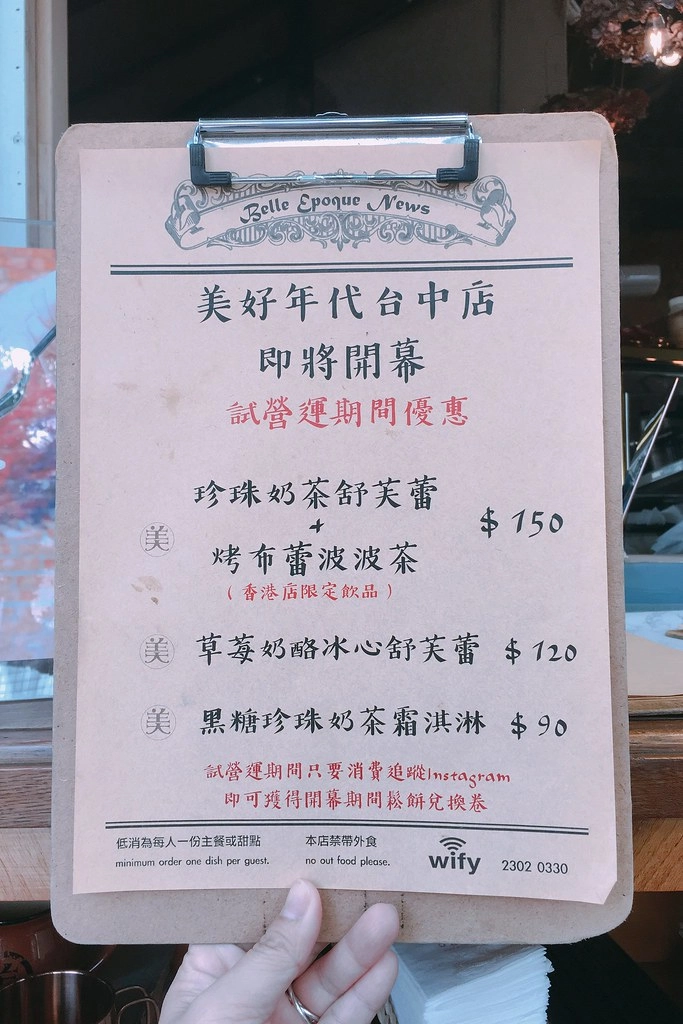 Belle Epoque News
美好年代台中店
即將開幕
試營運期間優惠
珍珠奶茶舒芙蕾
+
美
$ 150
烤布蕾波波茶
(香港店限定飲品)
美 草莓奶酪冰心舒芙蕾 $ 120
美 黑糖珍珠奶茶霜淇淋 $ 90
試營運期間只要消費追蹤Instagram
即可獲得開幕期間鬆餅兌換卷
低消為每人一份主餐或甜點 本店禁帶外食
minimum order one dish per guest. no out food please. wify 2302 0330